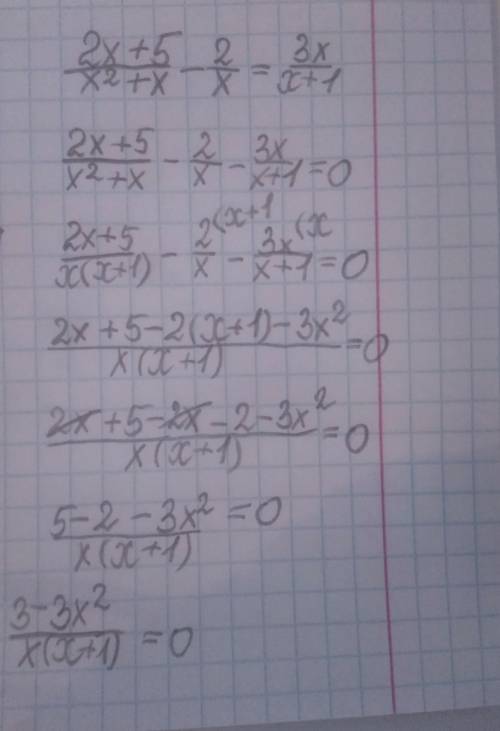 (2x+5)/(x²+x) - 2/x = 3x/(x+1)
(2x+5)/(x²+x) - 2/x - 3x/(x+1) = 0
(2x+5)/(x(x+1)) - 2(x+1/x - 3x(x/(x+1) = 0
(2x+5-2(x+1)-3x²)/(x(x+1)) = 0
(2x+5-2x-2-3x²)/(x(x+1)) = 0
(5-2-3x²)/(x(x+1)) = 0
(3-3x²)/(x(x+1)) = 0